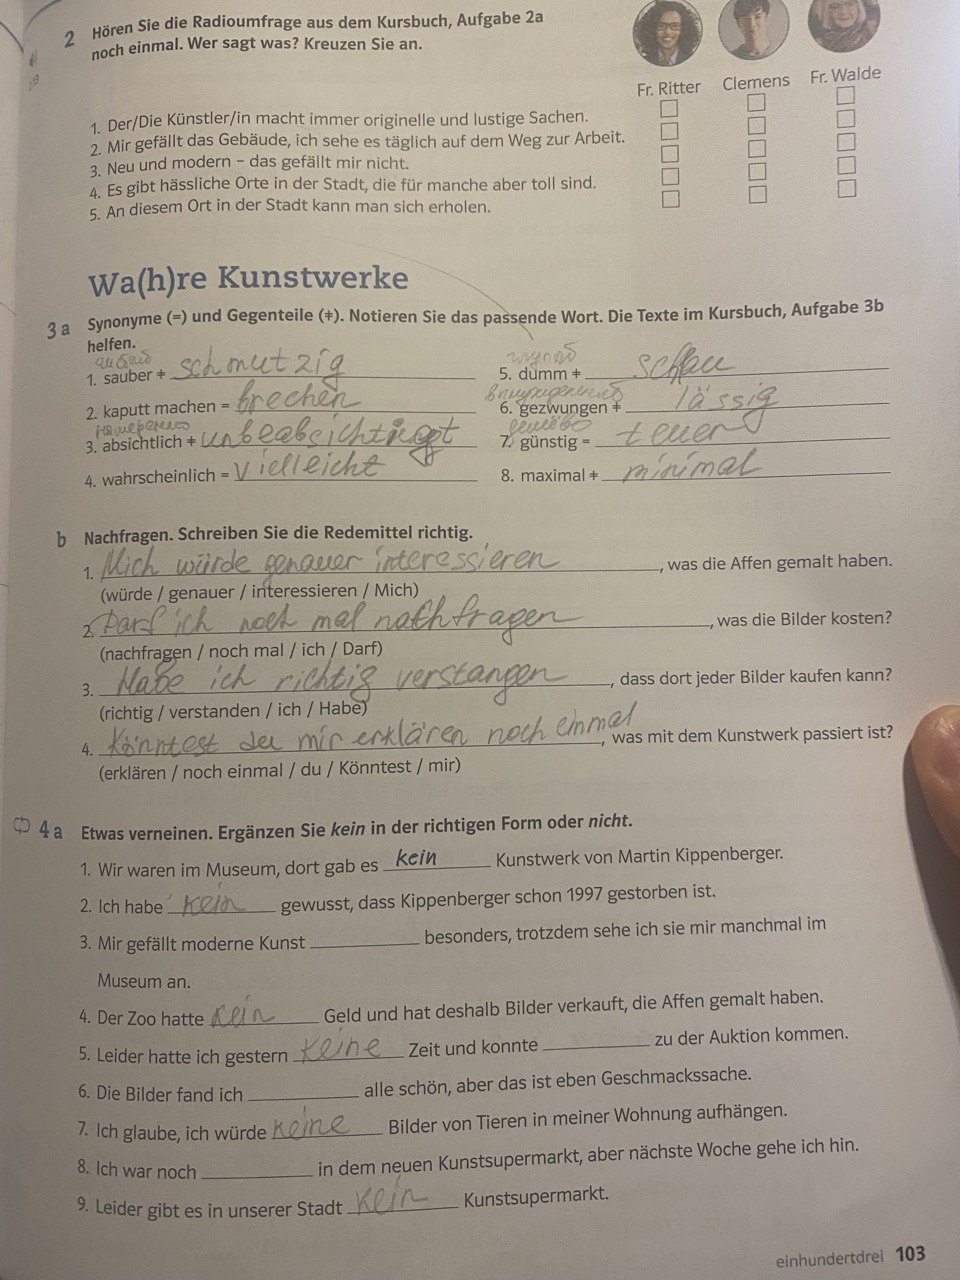 2 Hören Sie die Radioumfrage aus dem Kursbuch, Aufgabe 2a
noch einmal. Wer sagt was? Kreuzen Sie an.
Fr. Ritter Clemens Fr. Walde
1. Der/Die Künstler/in macht immer originelle und lustige Sachen.
2. Mir gefällt das Gebäude, ich sehe es täglich auf dem Weg zur Arbeit.
3. Neu und modern – das gefällt mir nicht.
4. Es gibt hässliche Orte in der Stadt, die für manche aber toll sind.
5. An diesem Ort in der Stadt kann man sich erholen.
Wa(h)re Kunstwerke
3 a Synonyme (=) und Gegenteile (≠). Notieren Sie das passende Wort. Die Texte im Kursbuch, Aufgabe 3b
helfen.
1. sauber ≠ schmutzig
2. kaputt machen = brechen
3. absichtlich ≠ unbeabsichtigt
4. wahrscheinlich = vielleicht
5. dumm ≠ schlau
6. gezwungen ≠ lässig
7. günstig = teuer
8. maximal ≠ minimal
b Nachfragen. Schreiben Sie die Redemittel richtig.
1. Mich würde genauer interessieren, was die Affen gemalt haben.
(würde / genauer / interessieren / Mich)
2. Darf ich noch mal nachfragen, was die Bilder kosten?
(nachfragen / noch mal / ich / Darf)
3. Habe ich richtig verstangen, dass dort jeder Bilder kaufen kann?
(richtig / verstanden / ich / Habe)
4. Könntest du mir erklären noch einmal, was mit dem Kunstwerk passiert ist?
(erklären / noch einmal / du / Könntest / mir)
4 a Etwas verneinen. Ergänzen Sie kein in der richtigen Form oder nicht.
1. Wir waren im Museum, dort gab es kein Kunstwerk von Martin Kippenberger.
2. Ich habe kein gewusst, dass Kippenberger schon 1997 gestorben ist.
3. Mir gefällt moderne Kunst besonders, trotzdem sehe ich sie mir manchmal im
Museum an.
4. Der Zoo hatte kein Geld und hat deshalb Bilder verkauft, die Affen gemalt haben.
5. Leider hatte ich gestern keine Zeit und konnte zu der Auktion kommen.
6. Die Bilder fand ich alle schön, aber das ist eben Geschmackssache.
7. Ich glaube, ich würde keine Bilder von Tieren in meiner Wohnung aufhängen.
8. Ich war noch in dem neuen Kunstsupermarkt, aber nächste Woche gehe ich hin.
9. Leider gibt es in unserer Stadt kein Kunstsupermarkt.
einhundertdrei 103